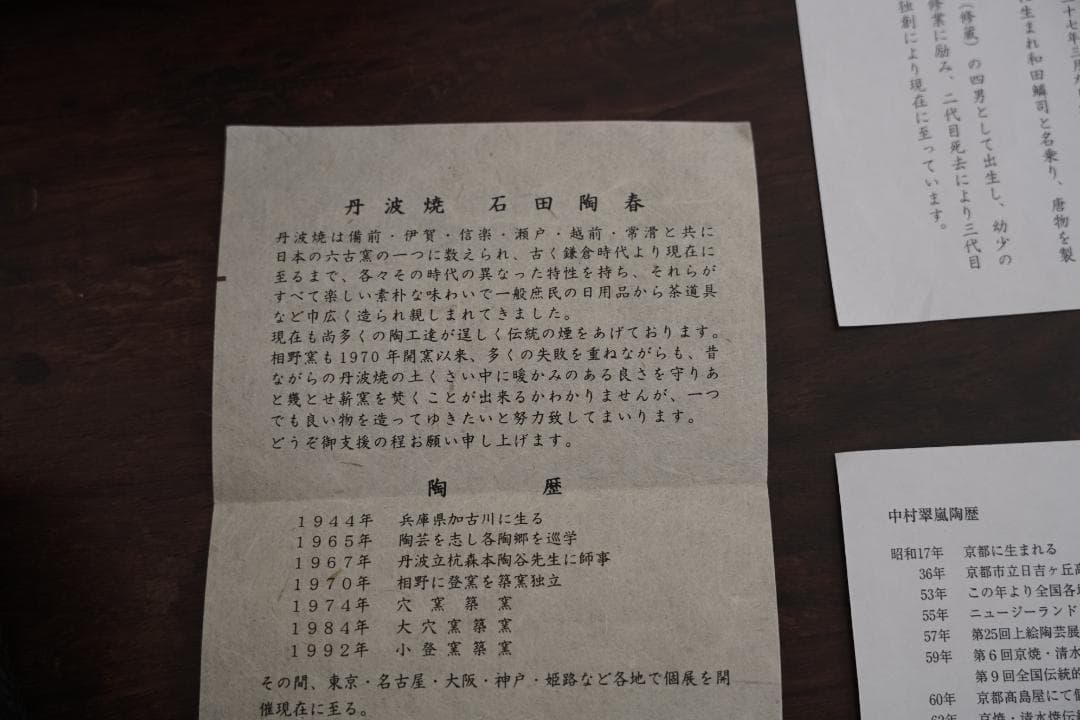 丹波焼　石田陶春
丹波焼は備前・伊賀・信楽・瀬戸・越前・常滑と共に
日本の六古窯の一つに数えられ、古く鎌倉時代より現在に
至るまで、各々その時代の異なった特性を持ち、それらが
すべて楽しい素朴な味わいで一般庶民の日用品から茶道具
など巾広く造られ親しまれてきました。
現在も尚多くの陶工達が逞しく伝統の煙をあげております。
相野窯も1970年開窯以来、多くの失敗を重ねながらも、昔
ながらの丹波焼の土くさい中に暖かみのある良さを守りあ
と幾とせ薪窯を焚くことが出来るかわかりませんが、一つ
でも良い物を造ってゆきたいと努力致してまいります。
どうぞ御支援の程お願い申し上げます。
陶　歴
1944年　兵庫県加古川に生る
1965年　陶芸を志し各陶郷を巡学
1967年　丹波立杭森本陶谷先生に師事
1970年　相野に登窯を築窯独立
1974年　穴窯築窯
1984年　大穴窯築窯
1992年　小登窯築窯
その間、東京・名古屋・大阪・神戸・姫路など各地で個展を開
催現在に至る。
十七年三月
に生まれ和田鱗司と名乗り、唐物を製
（修蔵）の四男として出生し、幼少の
修業に励み、二代目死去により三代目
独創により現在に至っています。
中村翠嵐陶歴
昭和17年　京都に生まれる
36年　京都市立日吉ヶ丘高
53年　この年より全国各地
55年　ニュージーランド
57年　第25回上絵陶芸展
59年　第６回京焼・清水
第９回全国伝統的
60年　京都髙島屋にて個
京焼・清水焼伝統